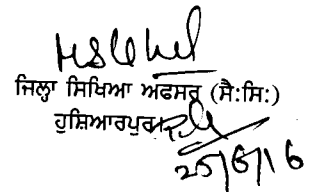 ਜਿਲ੍ਹਾ ਸਿਖਿਆ ਅਫਸਰ (ਸੈ:ਸਿ:)
ਹੁਸ਼ਿਆਰਪੁਰ
25/6/16